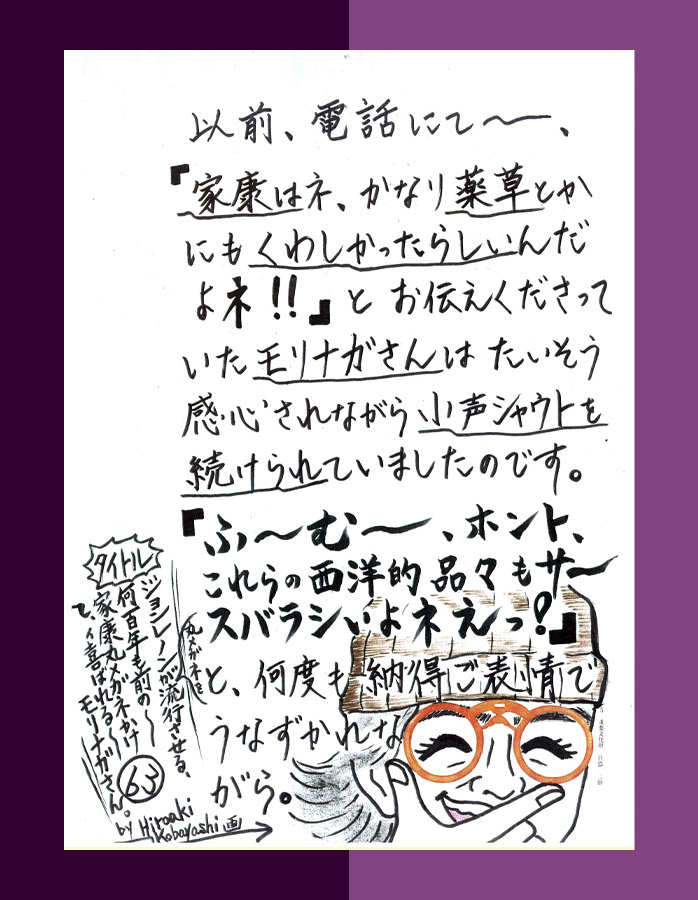 以前、電話にて〜、
『家康はネ、かなり薬草とか
にもくわしかったらしいんだ
よネ!!』とお伝えくださって
いたモリナガさんはたいそう
感心されながら小声シャウトを
続けられていましたのです。
『ふ〜む〜、ホント、
これらの西洋的品々もサー
スバラシいよネえっ!』
と、何度も納得ご表情で
うなずかれな
がら。
タイトル
ジョンレノンが流行させる、
丸メガネを
何百年も前の〜
家康丸メガネかけ
て、喜ばれる〜
モリナガさん。
63
by Hiroaki
Kobayashi画